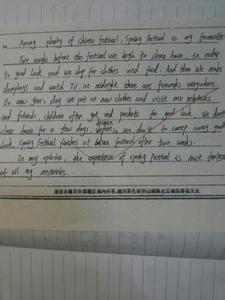 Among plenty of Chinese festival, Spring Festival is my favourite
Two weeks before the festival we begin to clean house in order
to good luck, and we shop for clothes and food. And then we make
dumplings and until TV at midnight there are fireworks everywhere.
On new years day we put on new clothes and visit our
and friends, children often get red packets for good luck. We don't
clean house for a few days, we don't to sweep away good
luck. Spring Festival finishes at lantern festival after two weeks.
In my opinion, the experience of spring Festival is most
of all my memories.